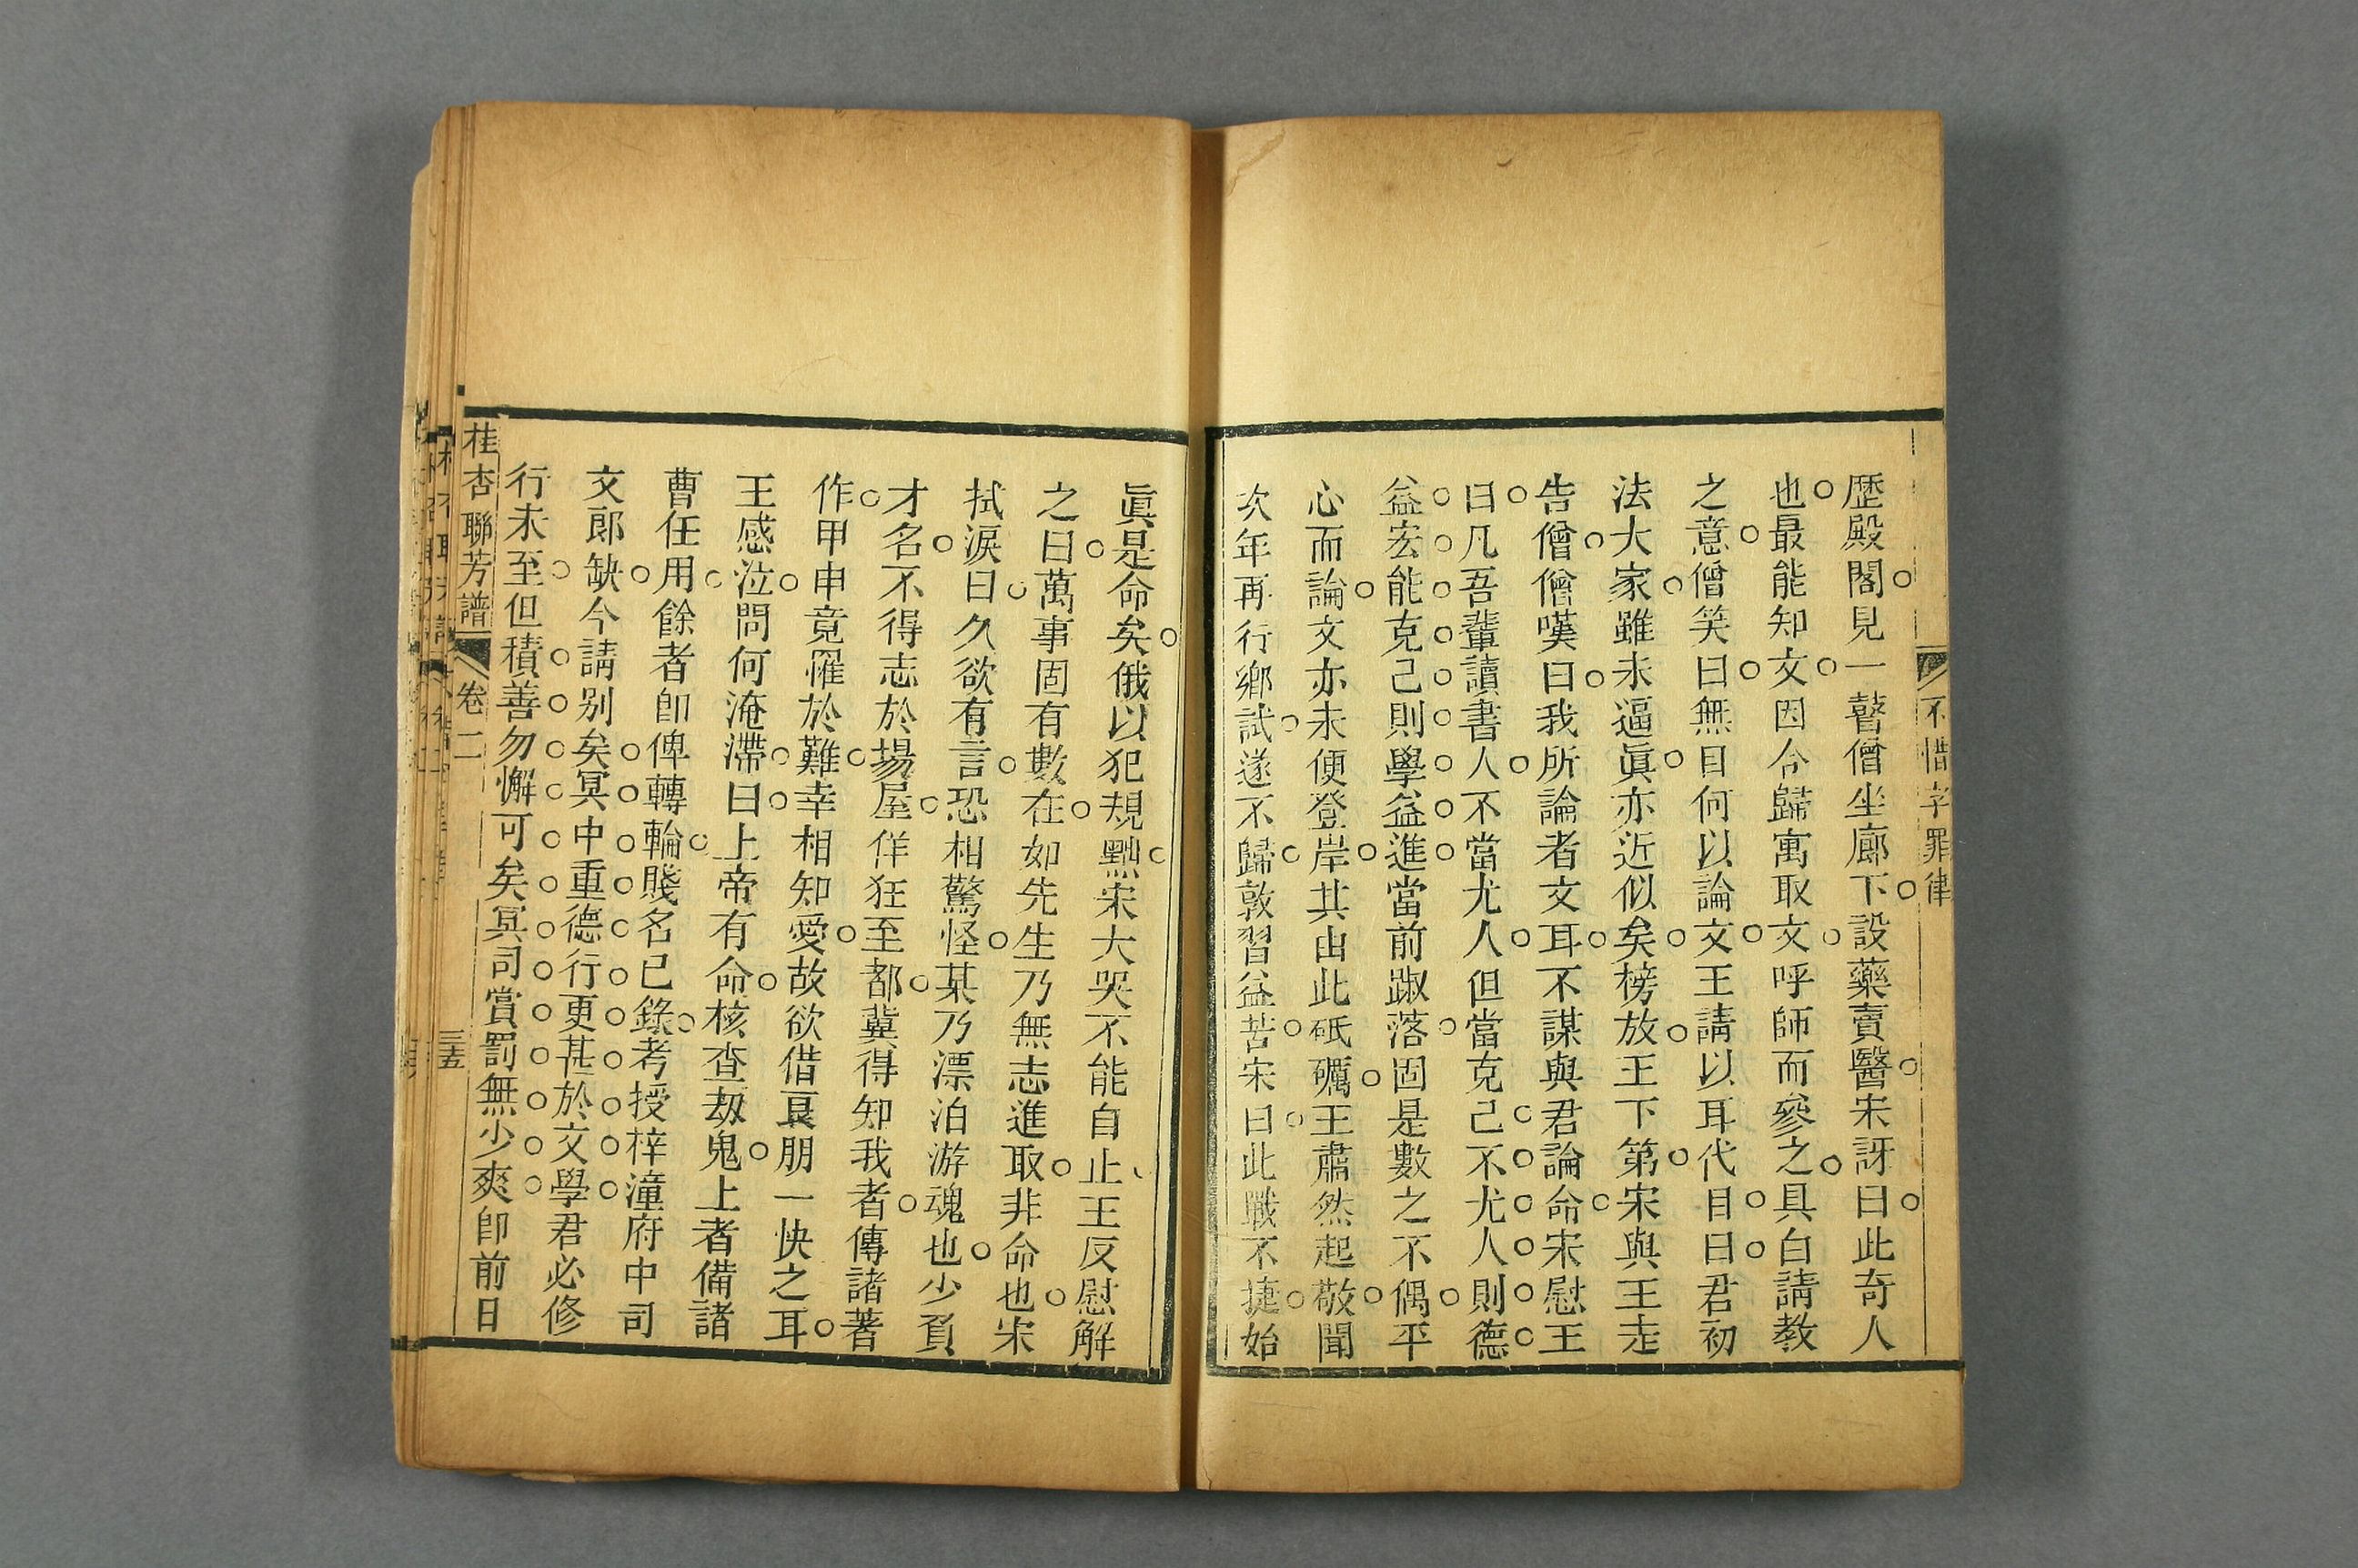 不惜字罪律
歷殿閣見一瞽僧坐廊下設藥賣醫宋訝曰此奇人
也最能知文因令歸寓取文呼師而參之具白請教
之意僧笑曰無目何以論文王請以耳代目曰君初
法大家雖未逼眞亦近似矣榜放王下第宋與王走
告僧僧嘆曰我所論者文耳不謀與君論命宋慰王
曰凡吾輩讀書人不當尤人但當克己不尤人則德
益宏能克己則學益進當前踧落固是數之不偶平
心而論文亦未便登岸其由此砥礪王肅然起敬聞
次年再行鄉試遂不歸敦習益苦宋曰此戰不捷始
眞是命矣俄以犯規黜宋大哭不能自止王反慰解
之曰萬事固有數在如先生乃無志進取非命也宋
拭淚曰久欲有言恐相驚怪某乃漂泊游魂也少負
才名不得志於場屋佯狂至都冀得知我者傳諸著
作甲申竟罹於難幸相知愛故欲借良朋一快之耳
王感泣問何淹滯曰上帝有命核查刼鬼上者備諸
曹任用餘者卽俾轉輪賤名已錄考授梓潼府中司
文郞缺今請別矣冥中重德行更甚於文學君必修
行未至但積善勿懈可矣冥司賞罰無少爽卽前日
桂杏聯芳譜
卷二
三五